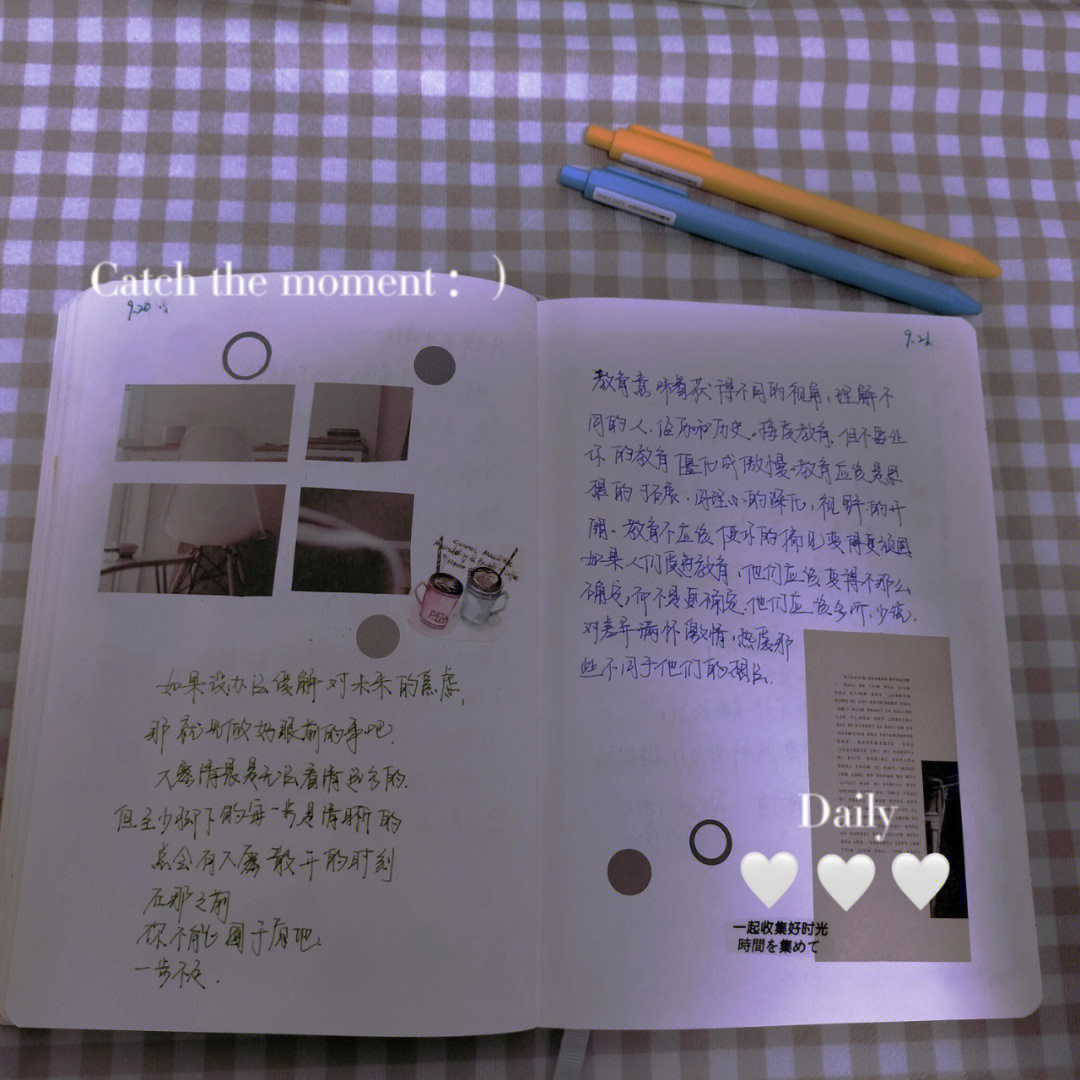 Catch the moment : )
9.20
如果没办法缓解对未来的焦虑,
那就先做好眼前的事吧.
大雾情景是无法看清远方的.
但至少脚下的每一步是清晰的
总会有大雾散开的时刻
在那之前
你不能囿于原地
一步不走.
9.21
教育意味着获得不同的视角,理解不
同的人、经历和历史。接受教育,但不要让
你的教育僵化成傲慢.教育应该是思
想的拓展,同理心的深化,视野的开
阔。教育不应该使你的偏见变得更顽固
如果人们受过教育,他们应该变得不那么
确定,而不是更确定.他们应该多听,少说,
对差异满怀激情,热爱那
些不同于他们的想法.
Daily
一起收集好时光
時間を集めて